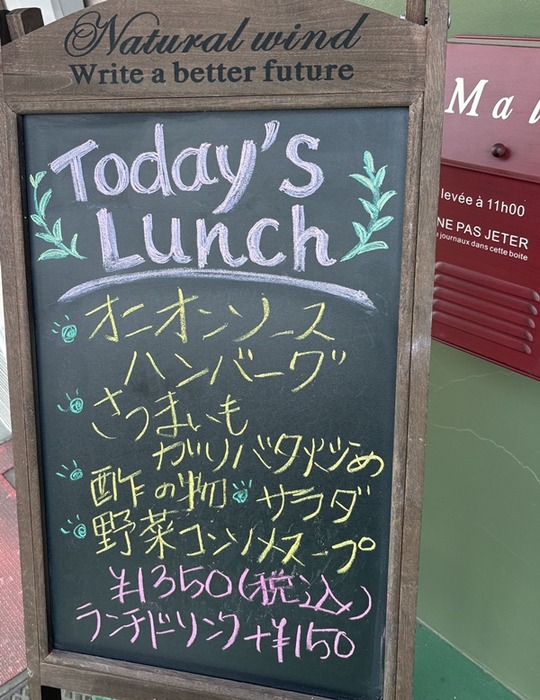 Natural wind
Write a better future
Today's
Lunch
オニオンソース
ハンバーグ
さつまいも
ガリバタ炒め
酢の物 サラダ
野菜コンソメスープ
¥1350(税込)
ランチドリンク+¥150
Mal
levée à 11h00
NE PAS JETER
journaux dans cette boite